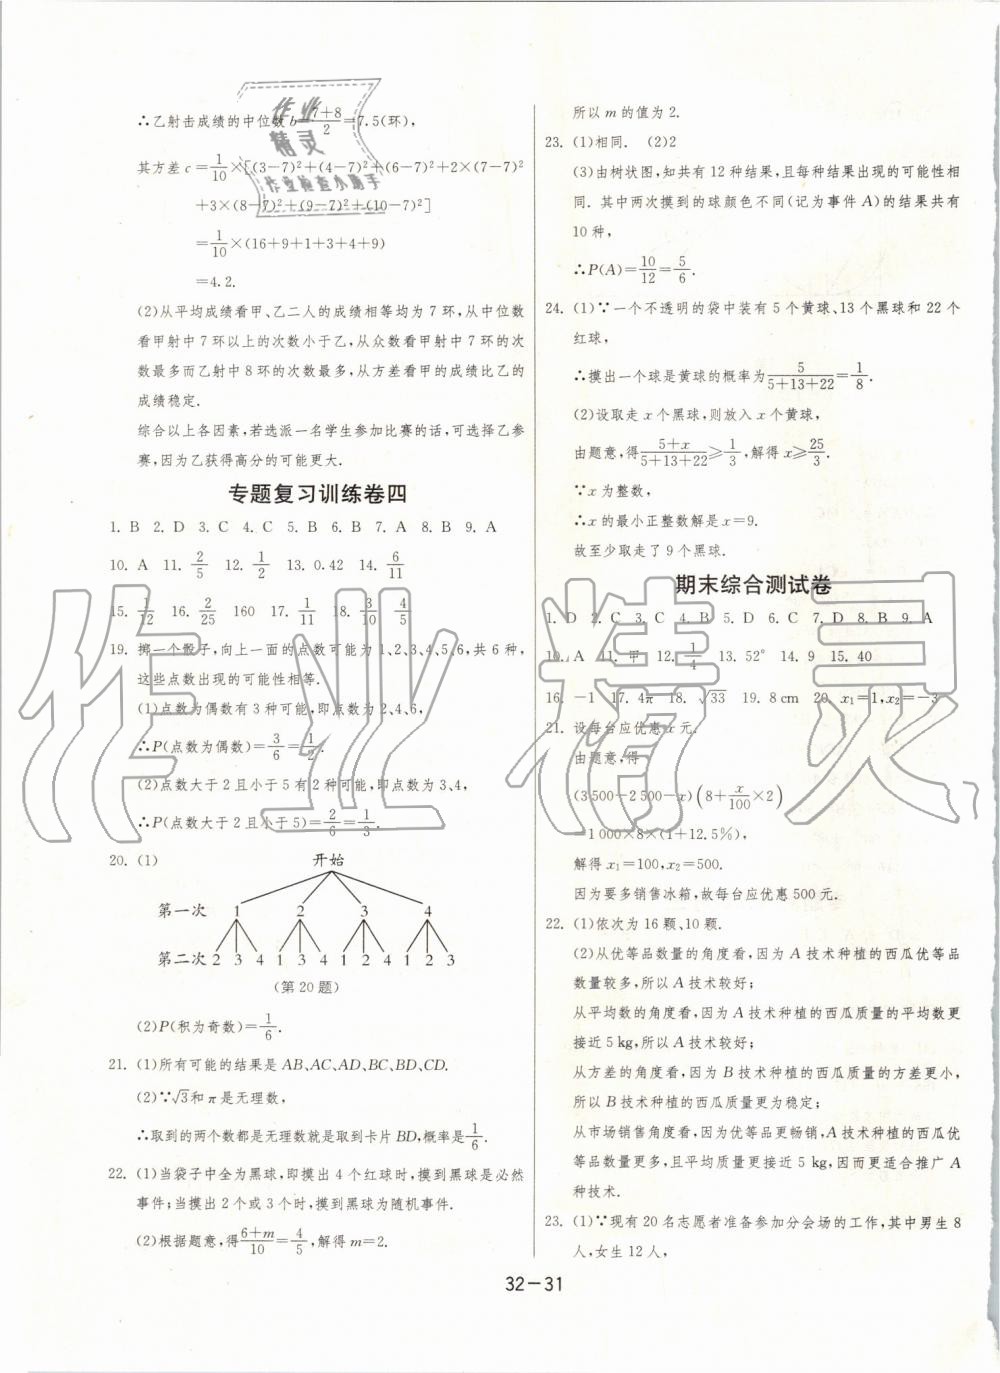 ∴乙射击成绩的中位数 b=(7+8)/2=7.5(环),
其方差 c=1/10×[(3-7)²+(4-7)²+(6-7)²+2×(7-7)²
+3×(8-7)²+(9-7)²+(10-7)²]
=1/10×(16+9+1+3+4+9)
=4.2.
(2)从平均成绩看甲、乙二人的成绩相等均为 7 环,从中位数
看甲射中 7 环以上的次数小于乙,从众数看甲射中 7 环的次
数最多而乙射中 8 环的次数最多,从方差看甲的成绩比乙的
成绩稳定.
综合以上各因素,若选派一名学生参加比赛的话,可选择乙参
赛,因为乙获得高分的可能更大.
专题复习训练卷四
1. B 2. D 3. C 4. C 5. B 6. B 7. A 8. B 9. A
10. A 11. 2/5 12. 1/2 13. 0.42 14. 6/11
15. 1/12 16. 2/25 160 17. 1/11 18. 3/10 4/5
19. 掷一个骰子,向上一面的点数可能为1,2,3,4,5,6,共 6 种,
这些点数出现的可能性相等.
(1)点数为偶数有 3 种可能,即点数为2,4,6,
∴P(点数为偶数)=3/6=1/2.
(2)点数大于 2 且小于 5 有 2 种可能,即点数为3、4,
∴P(点数大于 2 且小于 5)=2/6=1/3.
20. (1)
开始
第一次 1 2 3 4
第二次 2 3 4 1 3 4 1 2 4 1 2 3
(第 20 题)
(2)P(积为奇数)=1/6.
21. (1)所有可能的结果是 AB、AC、AD、BC、BD、CD.
(2)∵√3和 π 是无理数,
∴取到的两个数都是无理数就是取到卡片 BD,概率是1/6.
22. (1)当袋子中全为黑球,即摸出 4 个红球时,摸到黑球是必然
事件;当摸出 2 个或 3 个时,摸到黑球为随机事件.
(2)根据题意,得(6+m)/10=4/5,解得 m=2.
所以 m 的值为 2.
23. (1)相同. (2)2
(3)由树状图,知共有 12 种结果,且每种结果出现的可能性相
同. 其中两次摸到的球颜色不同(记为事件 A)的结果共有
10 种,
∴P(A)=10/12=5/6.
24. (1)∵一个不透明的袋中装有 5 个黄球、13 个黑球和 22 个
红球,
∴摸出一个球是黄球的概率为5/(5+13+22)=1/8.
(2)设取走 x 个黑球,则放入 x 个黄球,
由题意,得(5+x)/(5+13+22)≥1/3,解得 x≥25/3.
∵x 为整数,
∴x 的最小正整数解是 x=9.
故至少取走了 9 个黑球.
期末综合测试卷
1. D 2. C 3. C 4. B 5. D 6. C 7. D 8. B 9. A
10. A 11. 甲 12. 1/4 13. 52° 14. 9 15. 40
16. -1 17. 4π 18. √33 19. 8 cm 20. x₁=1,x₂=-3
21. 设每台应优惠 x 元.
由题意,得
(3 500-2 500-x)(8+x/100×2)
1 000×8×(1+12.5%),
解得 x₁=100,x₂=500.
因为要多销售冰箱,故每台应优惠 500 元.
22. (1)依次为 16 颗、10 颗.
(2)从优等品数量的角度看,因为 A 技术种植的西瓜优等品
数量较多,所以 A 技术较好;
从平均数的角度看,因为 A 技术种植的西瓜质量的平均数更
接近 5 kg,所以 A 技术较好;
从方差的角度看,因为 B 技术种植的西瓜质量的方差更小,
所以 B 技术种植的西瓜质量更为稳定;
从市场销售角度看,因为优等品更畅销,A 技术种植的西瓜优
等品数量更多,且平均质量更接近 5 kg,因而更适合推广 A
种技术.
23. (1)∵现有 20 名志愿者准备参加分会场的工作,其中男生 8
人,女生 12 人,
32-31
作业
精灵
作业检查小助手
作业精灵